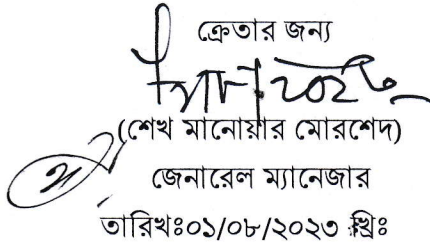 ক্রেতার জন্য
(শেখ মানোয়ার মোরশেদ)
জেনারেল ম্যানেজার
তারিখঃ০১/০৮/২০২৩ খ্রিঃ